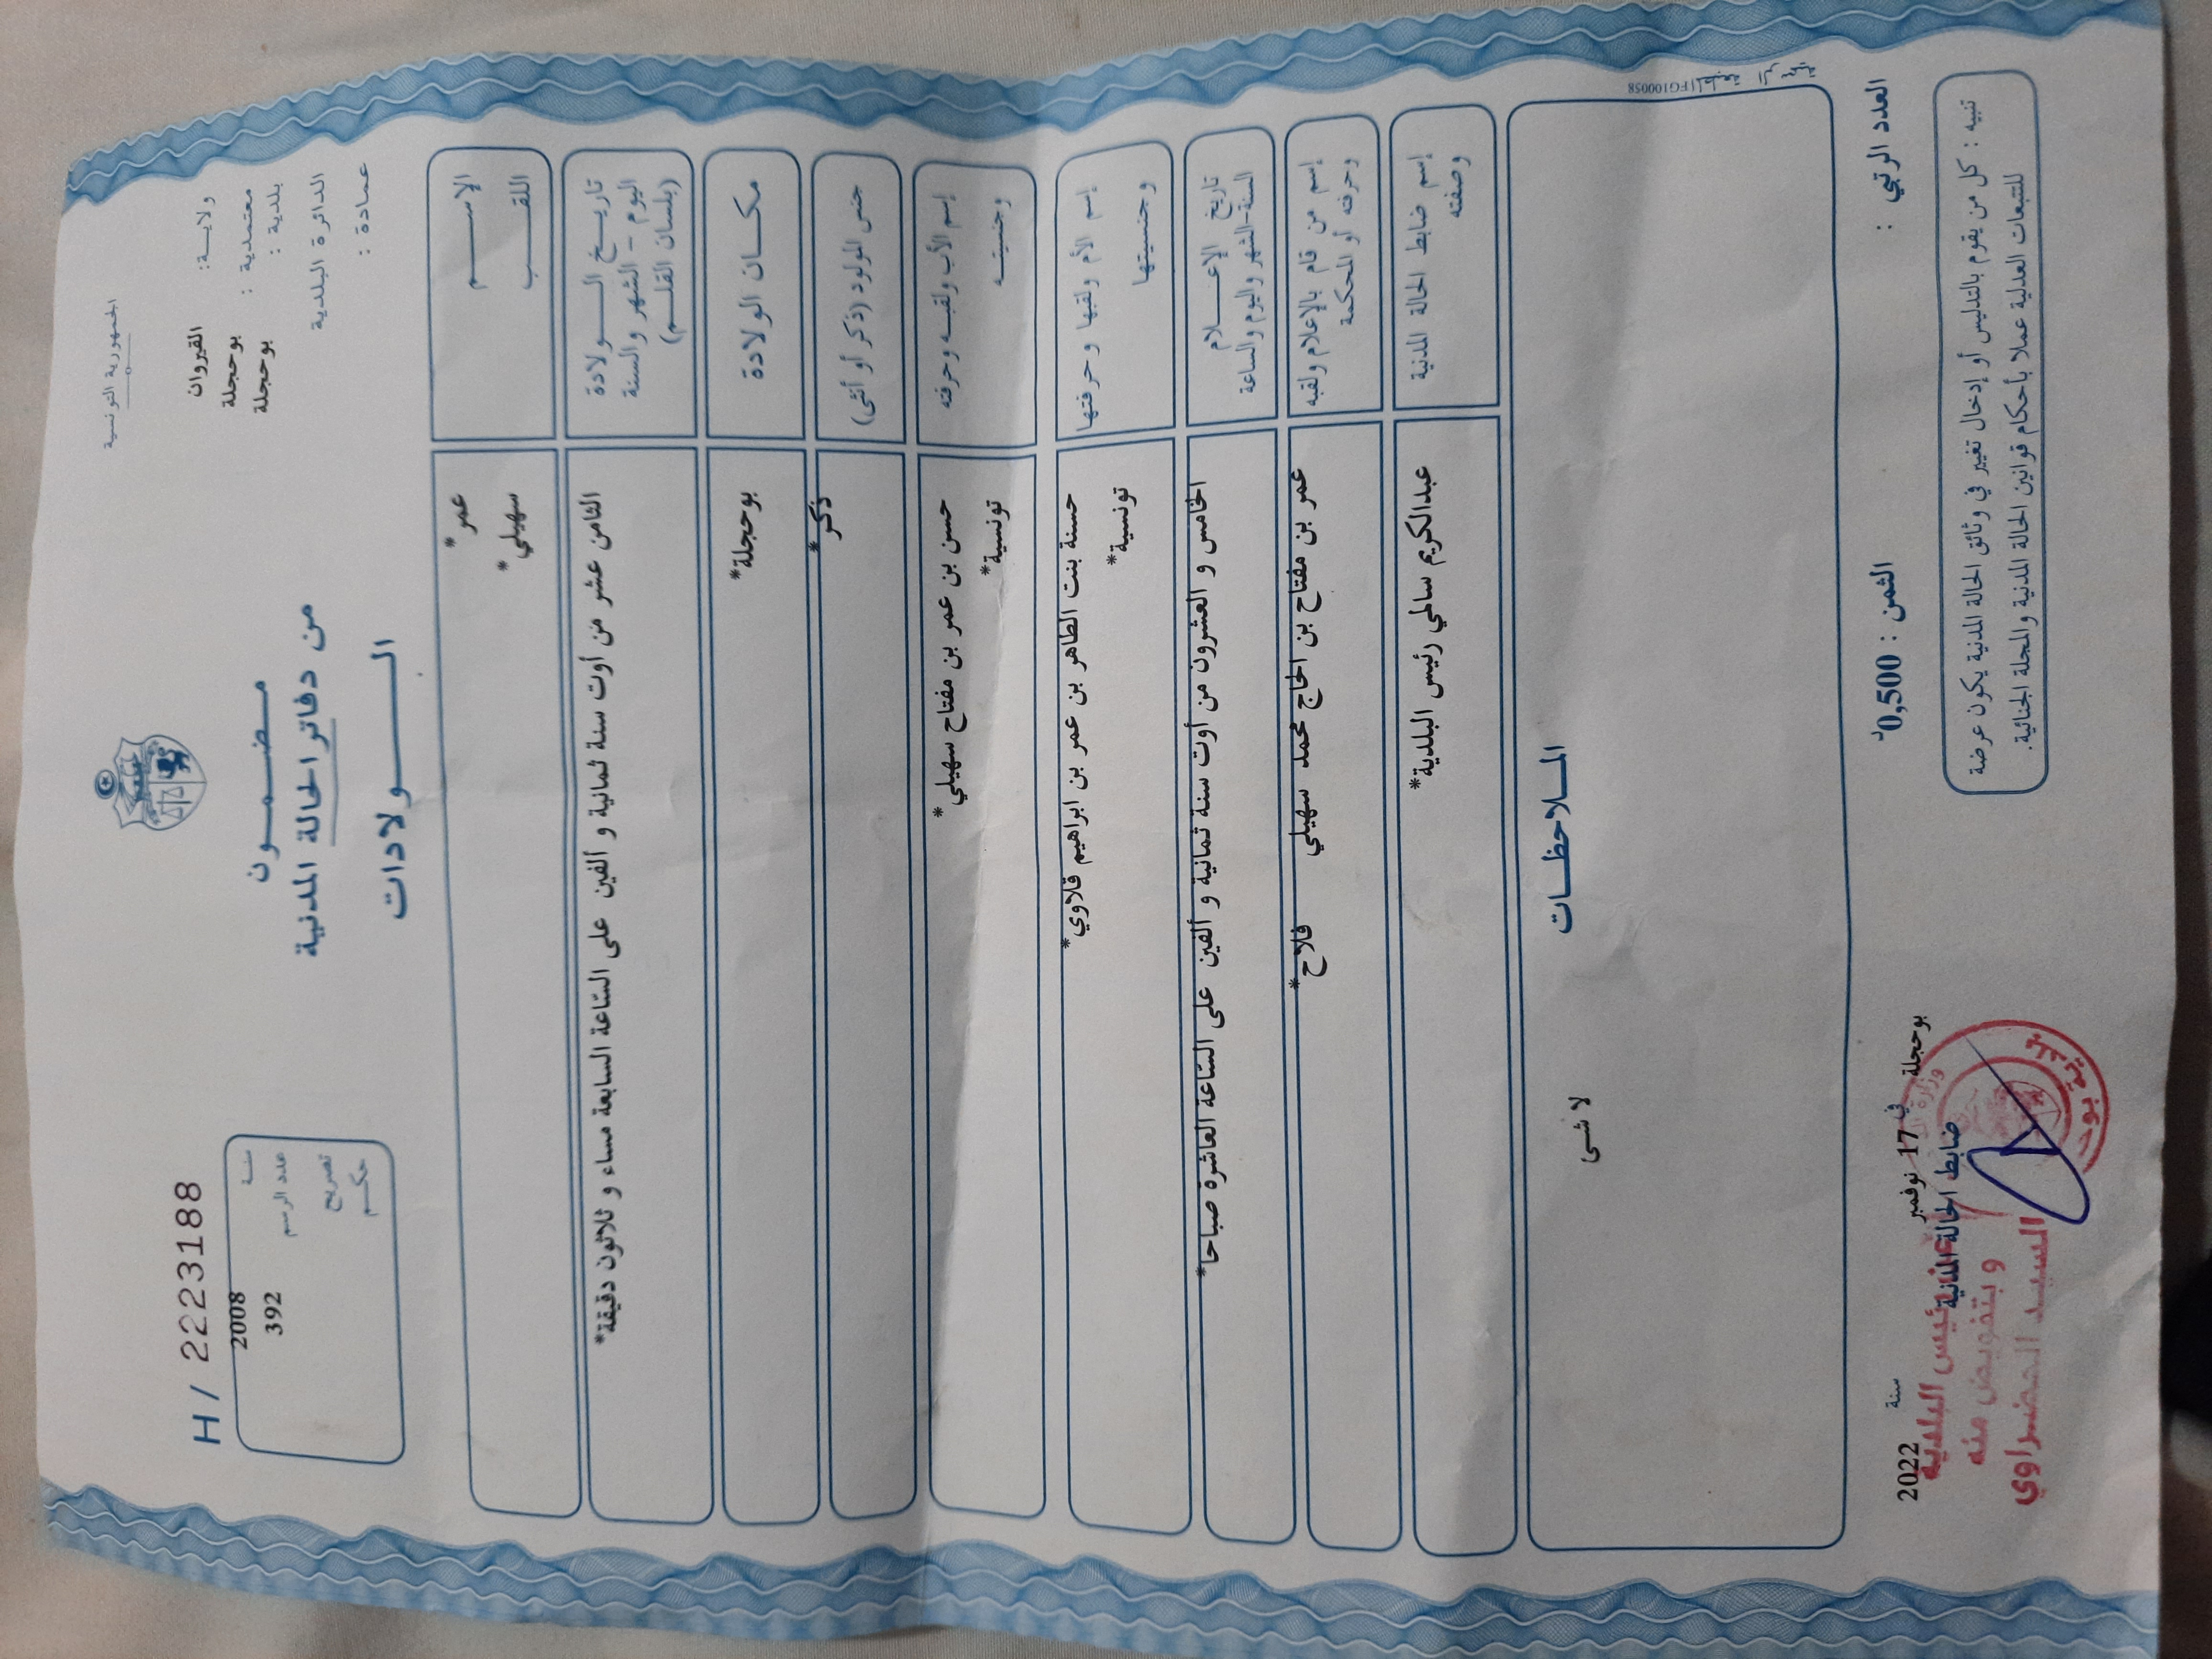 الجمهورية التونسية
ولاية: القيروان
معتمدية : بوحجلة
بلدية : بوحجلة
الدائرة البلدية
عمادة :
مضمون
من دفاتر الحالة المدنية
الولادات
H/ 2223188
سنة 2008
عدد الرسم 392
تصريح
حكم
الإسم
عمر *
اللقب
سهيلي *
تاريخ الولادة
اليوم - الشهر والسنة
(بلسان القلم)
الثامن عشر من أوت سنة ثمانية و ألفين على السّاعة السابعة مساء و ثلاثون دقيقة*
مكان الولادة
بوحجلة*
جنس المولود (ذكر أو أنثى)
ذكر *
إسم الأب ولقبه وحرفته
وجنسيته
حسن بن عمر بن مفتاح سهيلي *
تونسية*
إسم الأم ولقبها وحرفتها
وجنسيتها
حسنة بنت الطاهر بن عمر بن ابراهيم قلاوي*
تونسية*
تاريخ الإعلام
السنة-الشهر واليوم والساعة
الخامس و العشرون من أوت سنة ثمانية و ألفين على السّاعة العاشرة صباحا*
إسم من قام بالإعلام ولقبه
وحرفته أو المحكمة
عمر بن مفتاح بن الحاج محمد سهيلي فلاح*
إسم ضابط الحالة المدنية
وصفته
عبدالكريم سالمي رئيس البلدية*
الملاحظات
لا شئ
FG100058
العدد الرتبي :
الثمن : 0,500د
بوحجلة في 17 نوفمبر سنة 2022
ضابط الحالة المدنية
رئيس البلدية
وبتفويض منه
السيد الخضراوي
تنبيه : كل من يقوم بالتدليس أو إدخال تغيير في وثائق الحالة المدنية يكون عرضة
للتتبعات العدلية عملا بأحكام قوانين الحالة المدنية والمجلة الجنائية.